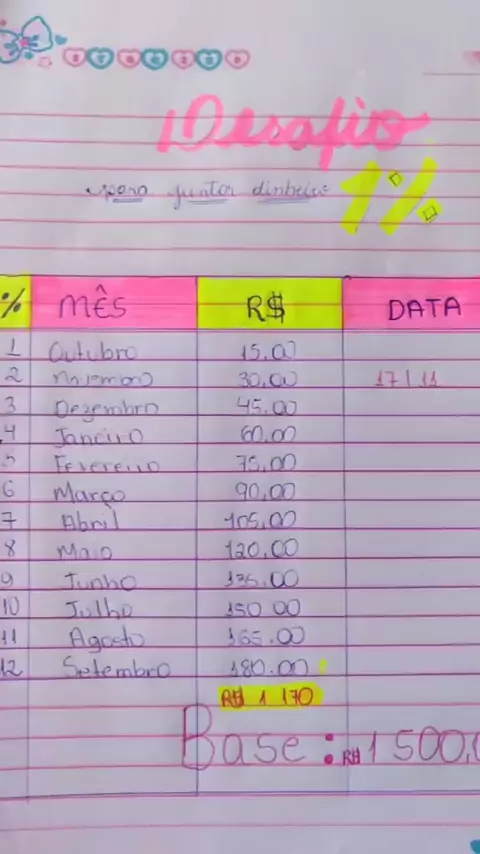 Desafio
para juntar dinheiro 1%
% MÊS R$ DATA
1 Outubro 15.00
2 Novembro 30,00 17/11
3 Dezembro 45.00
4 Janeiro 60.00
5 Fevereiro 75,00
6 Março 90,00
7 Abril 105,00
8 Maio 120,00
9 Junho 135.00
10 Julho 150 00
11 Agosto 165.00
12 Setembro 180.00
R$ 1 170
Base: R$ 1 500,0